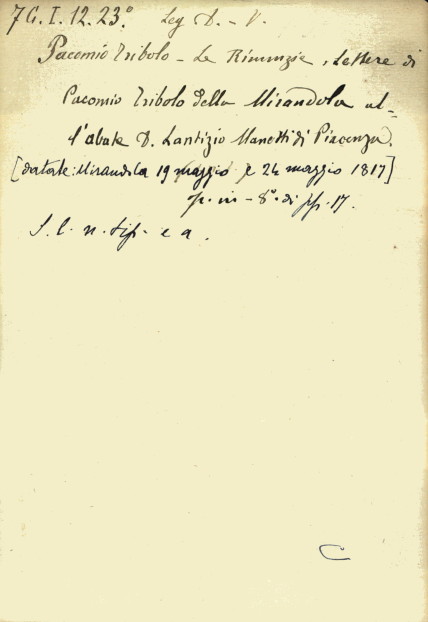 7G. I. 12. 23.° Leg D. - V.
Pacomio Tribolo - Le Rinunzie, Lettere di
Pacomio Tribolo della Mirandola al-
l'abate D. Lantizio Manetti di Piacenza.
[datate: Mirandola 19 maggio e 24 maggio 1817]
p. in - 8°. di pp. 17.
S. l. n. tip. e a.
C